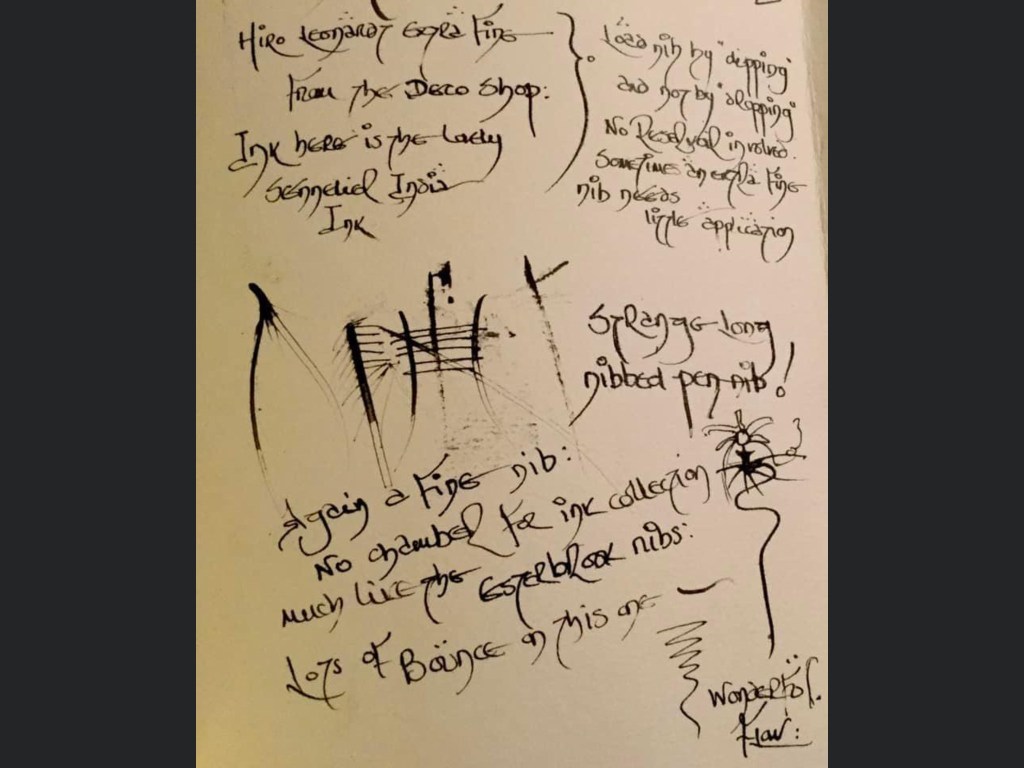 Hiro Leonardt Extra Fine
From the Deco Shop:
Ink here is the Lovely
Sennelier India
Ink
Load nib by "dipping"
and not by "dropping"
No Reservoir involved.
Sometimes an extra Fine
nib needs
little application
Strange long
nibbed pen nib!
Again a Fine nib:
No chamber for ink collection
much like the Esterbrook nibs:
Lots of Bounce on this one
Wonderful.
Flow: